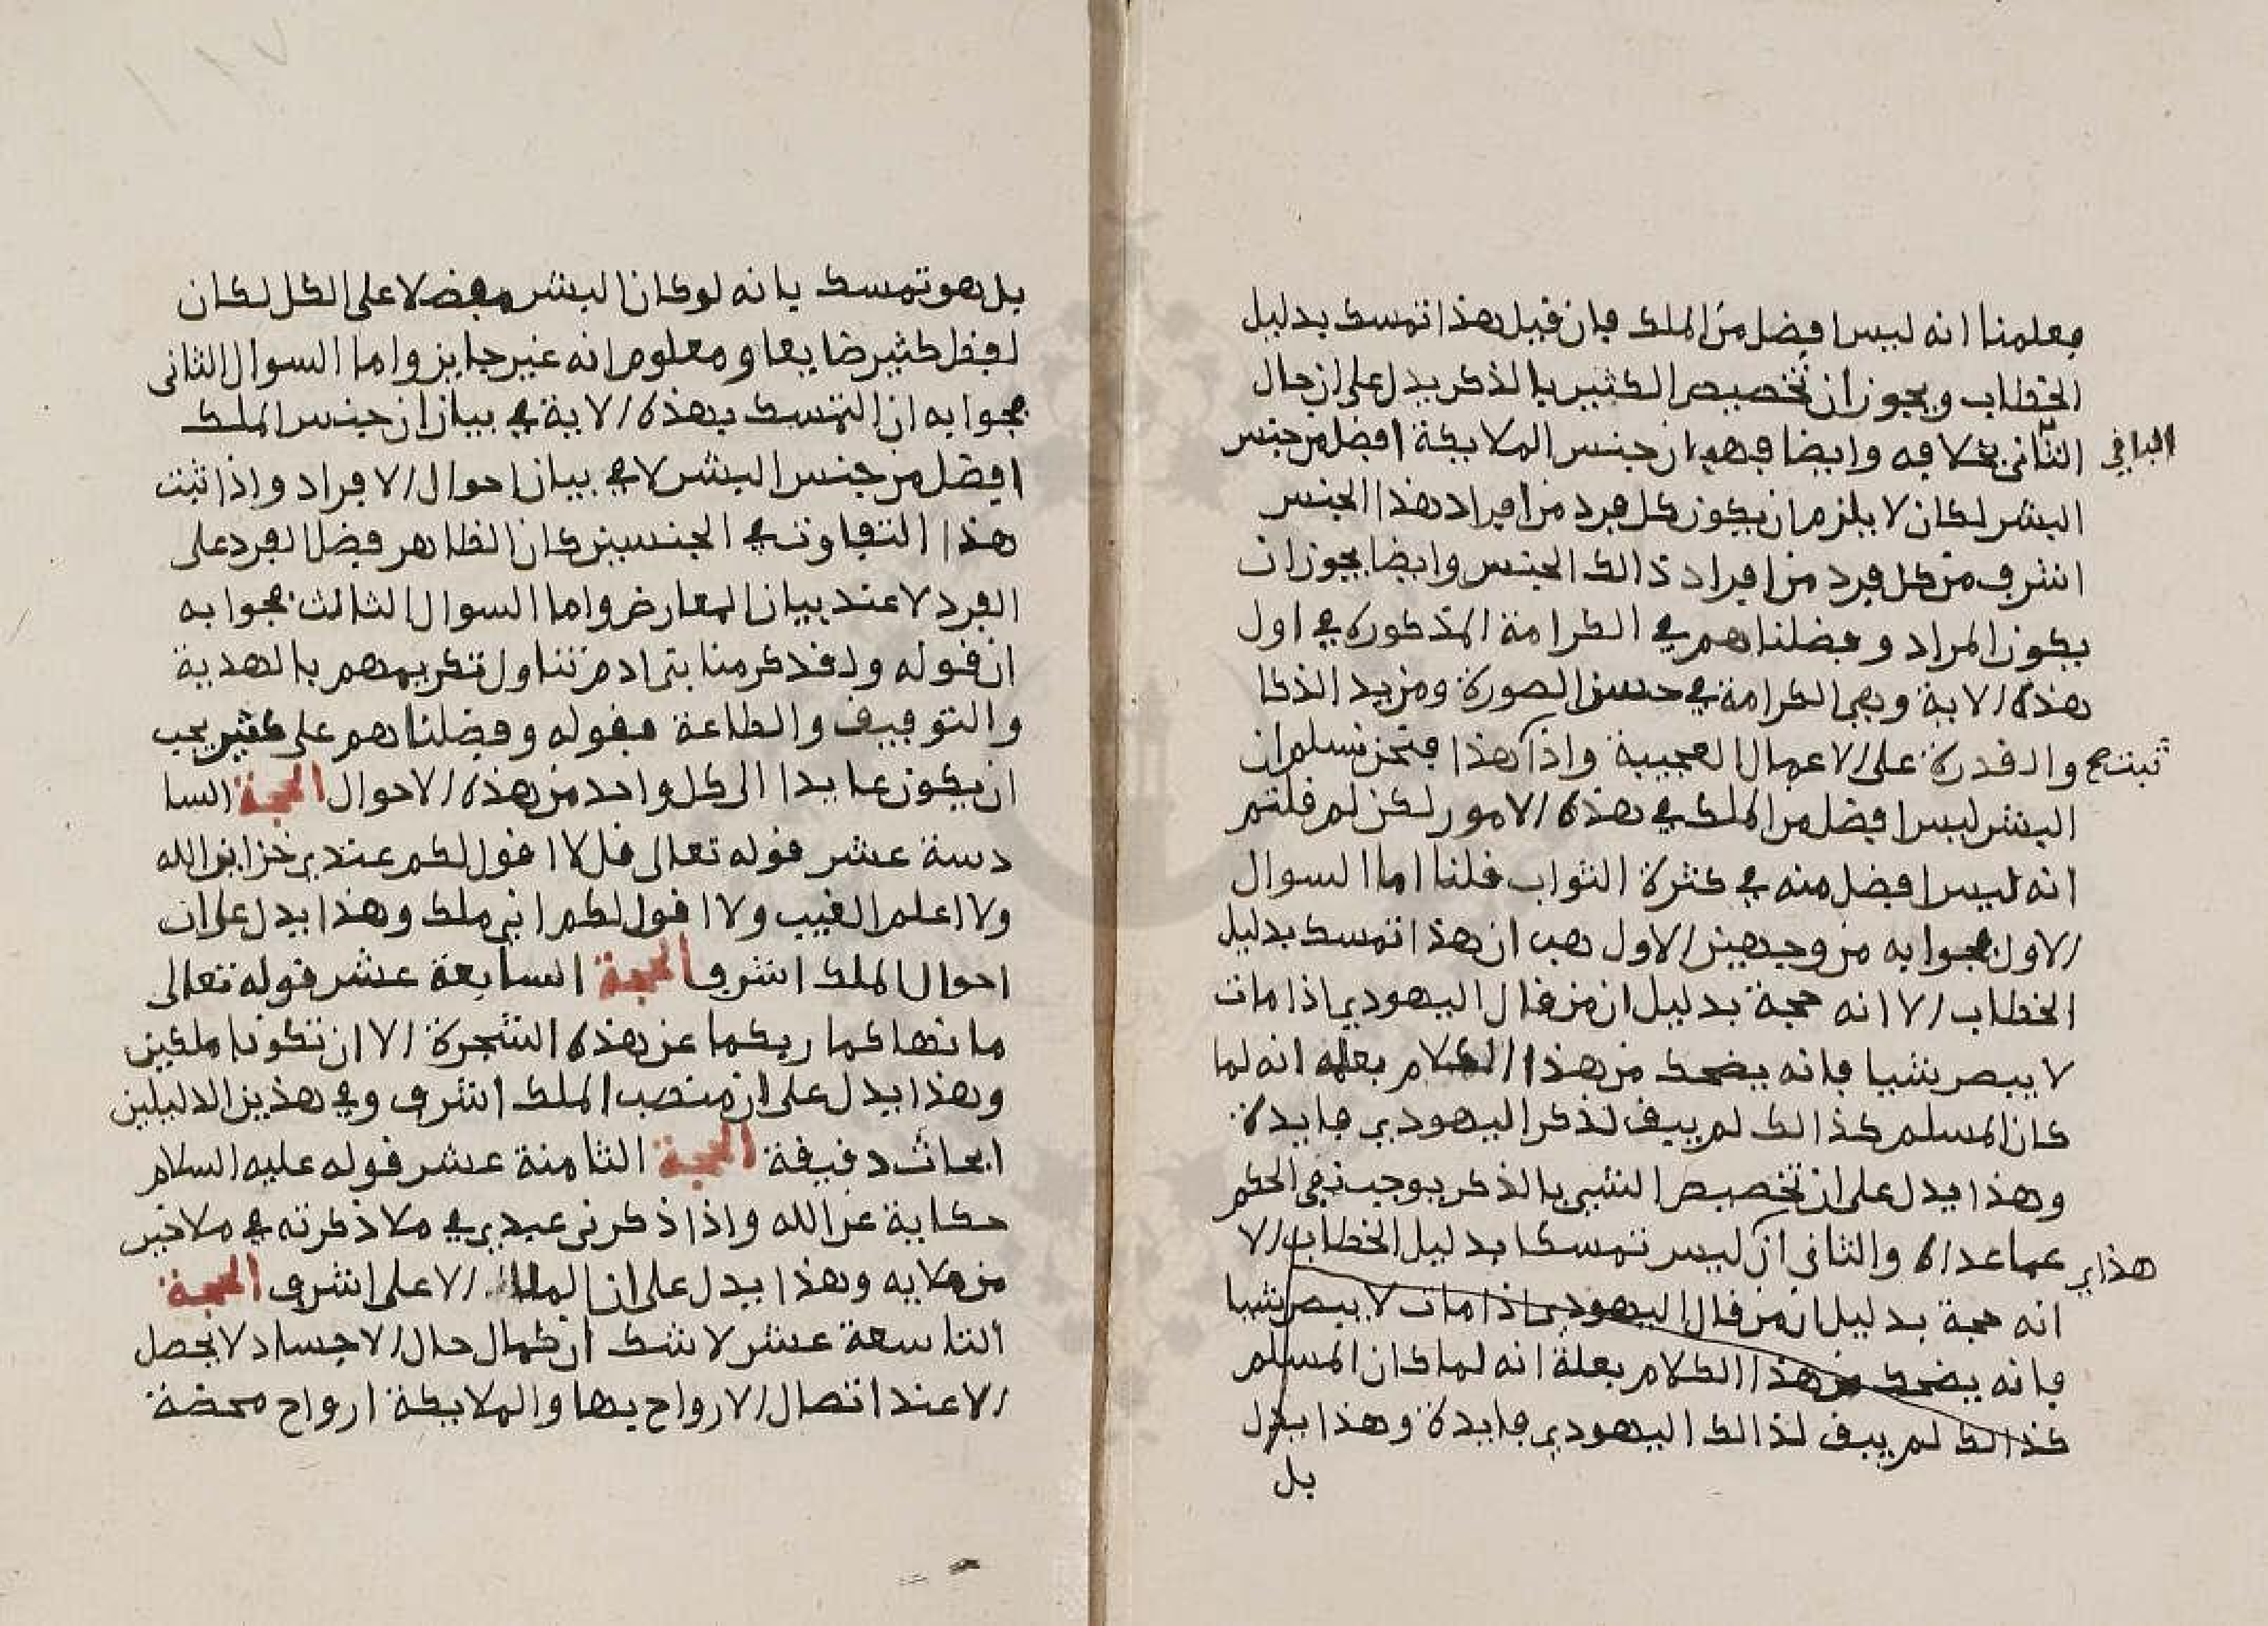 فعلمنا انه ليس افضل من الملك فان قيل هذا تمسك بدليل
الخطاب ويجوز ان تخصيص الكثير بالذكر يدل على ان حال
الثاني بخلافه وايضا فهو ان جنس الملايكة افضل من جنس
الباقي
البشر لكان لا يلزم ان يكون كل فرد من افراد هذا الجنس
اشرف من كل فرد من افراد ذالك الجنس وايضا يجوز ان
يكون المراد وفضلناهم في الكرامة المذكورة في اول
هذه الاية وهي الكرامة في حسن الصورة ومزيد الذكا
والقدرة على الاعمال العجيبة واذا كهذا فنحن نسلم ان
ثبت صح
البشر ليس افضل من الملك في هذه الامور لكن لم قلتم
انه ليس افضل منه في كثرة الثواب قلنا اما السوال
الاول فجوابه من وجهين الاول هب ان هذا تمسك بدليل
الخطاب الا انه حجة بدليل ان من قال اليهودي اذا مات
لا يبصر شيا فانه يضحك من هذا الكلام بعلة انه لما
كان المسلم كذالك لم يبق لذكر اليهودي فايدة
وهذا يدل على ان تخصيص الشي بالذكر يوجب نفي الحكم
عما عداه والثاني ان ليس تمسكا بدليل الخطاب الا
هذا اي
انه حجة بدليل ان من قال اليهودي اذا مات لا يبصر شيا
فانه يضحك من هذا الكلام بعلة انه لما كان المسلم
كذالك لم يبق لذالك اليهودي فايدة وهذا يدل
بل
بل هو تمسك بانه لو كان البشر مفضلا على الكل لكان
لفظ كثير ضايعا ومعلوم انه غير جايز واما السوال الثاني
فجوابه ان التمسك بهذه الاية في بيان ان جنس الملك
افضل من جنس البشر لا في بيان احوال الافراد واذا ثبت
هذا التفاوت في الجنسين كان الظاهر فضل الفرد على
الفرد لا عند بيان المعارض واما السوال الثالث فجوابه
ان قوله ولقد كرمنا بني ادم تتناول تكريمهم بالهدية
والتوفيف والطاعة فقوله وفضلناهم على كثير يجب
ان يكون عايدا الى كل واحد من هذه الاحوال الحجة السا
دسة عشر قوله تعالى قل لا اقول لكم عندي خزاين الله
ولا اعلم الغيب ولا اقول لكم اني ملك وهذا يدل على ان
احوال الملك اشرف الحجة السابعة عشر قوله تعالى
ما نهاكما ربكما عن هذه الشجرة الا ان تكونا ملكين
وهذا يدل على ان منصب الملك اشرف وفي هذين الدليلين
ابحاث دقيقة الحجة الثامنة عشر قوله عليه السلام
حكاية عن الله واذا ذكرني عبدي في ملا ذكرته في ملا خير
من ملايه وهذا يدل على ان الملا الاعلى اشرف الحجة
التاسعة عشر لا شك ان كمال حال الاجساد لا يحصل
الا عند اتصال الارواح بها والملايكة ارواح محضة